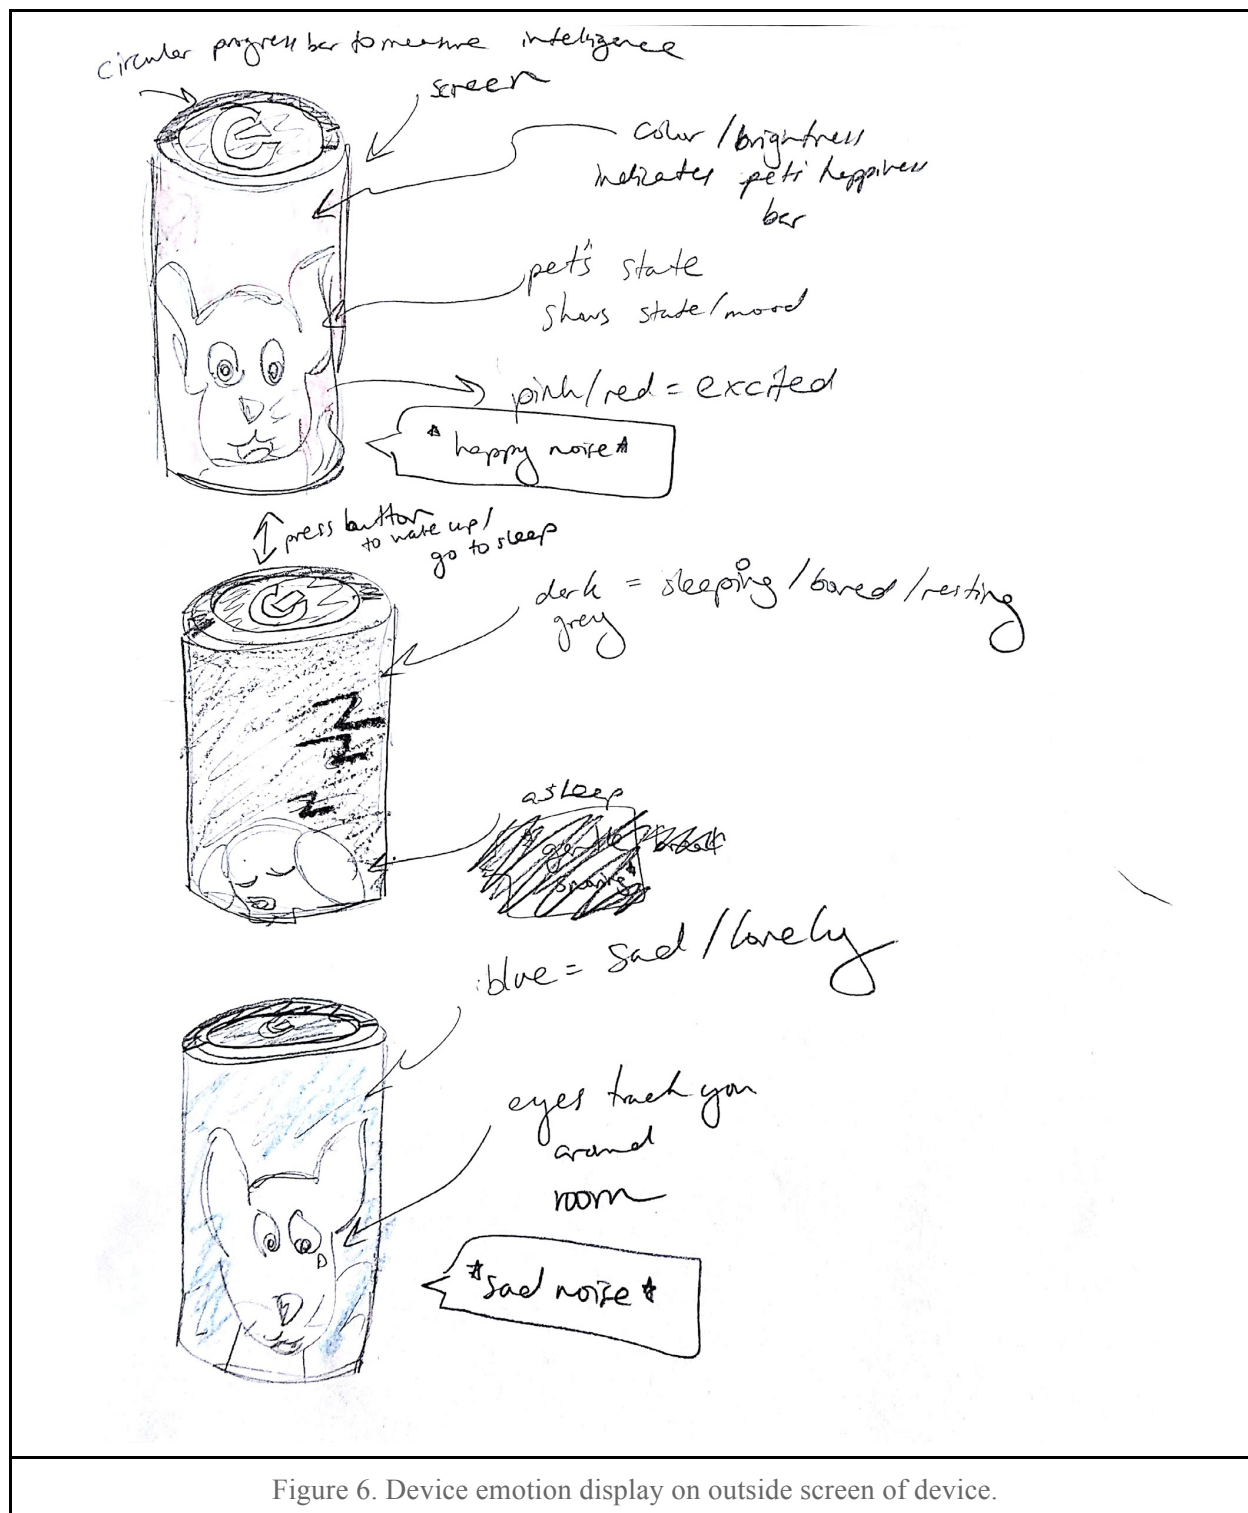 circular progress bar to measure intelligence
screen
color/brightness
indicates pet's happiness
bar
pet's state
shows state/mood
pink/red = excited
*happy noise*
press button
to wake up/
go to sleep
dark = sleeping/bored/resting
grey
asleep
blue = sad/lonely
eyes track you
around
room
*sad noise*
Figure 6. Device emotion display on outside screen of device.